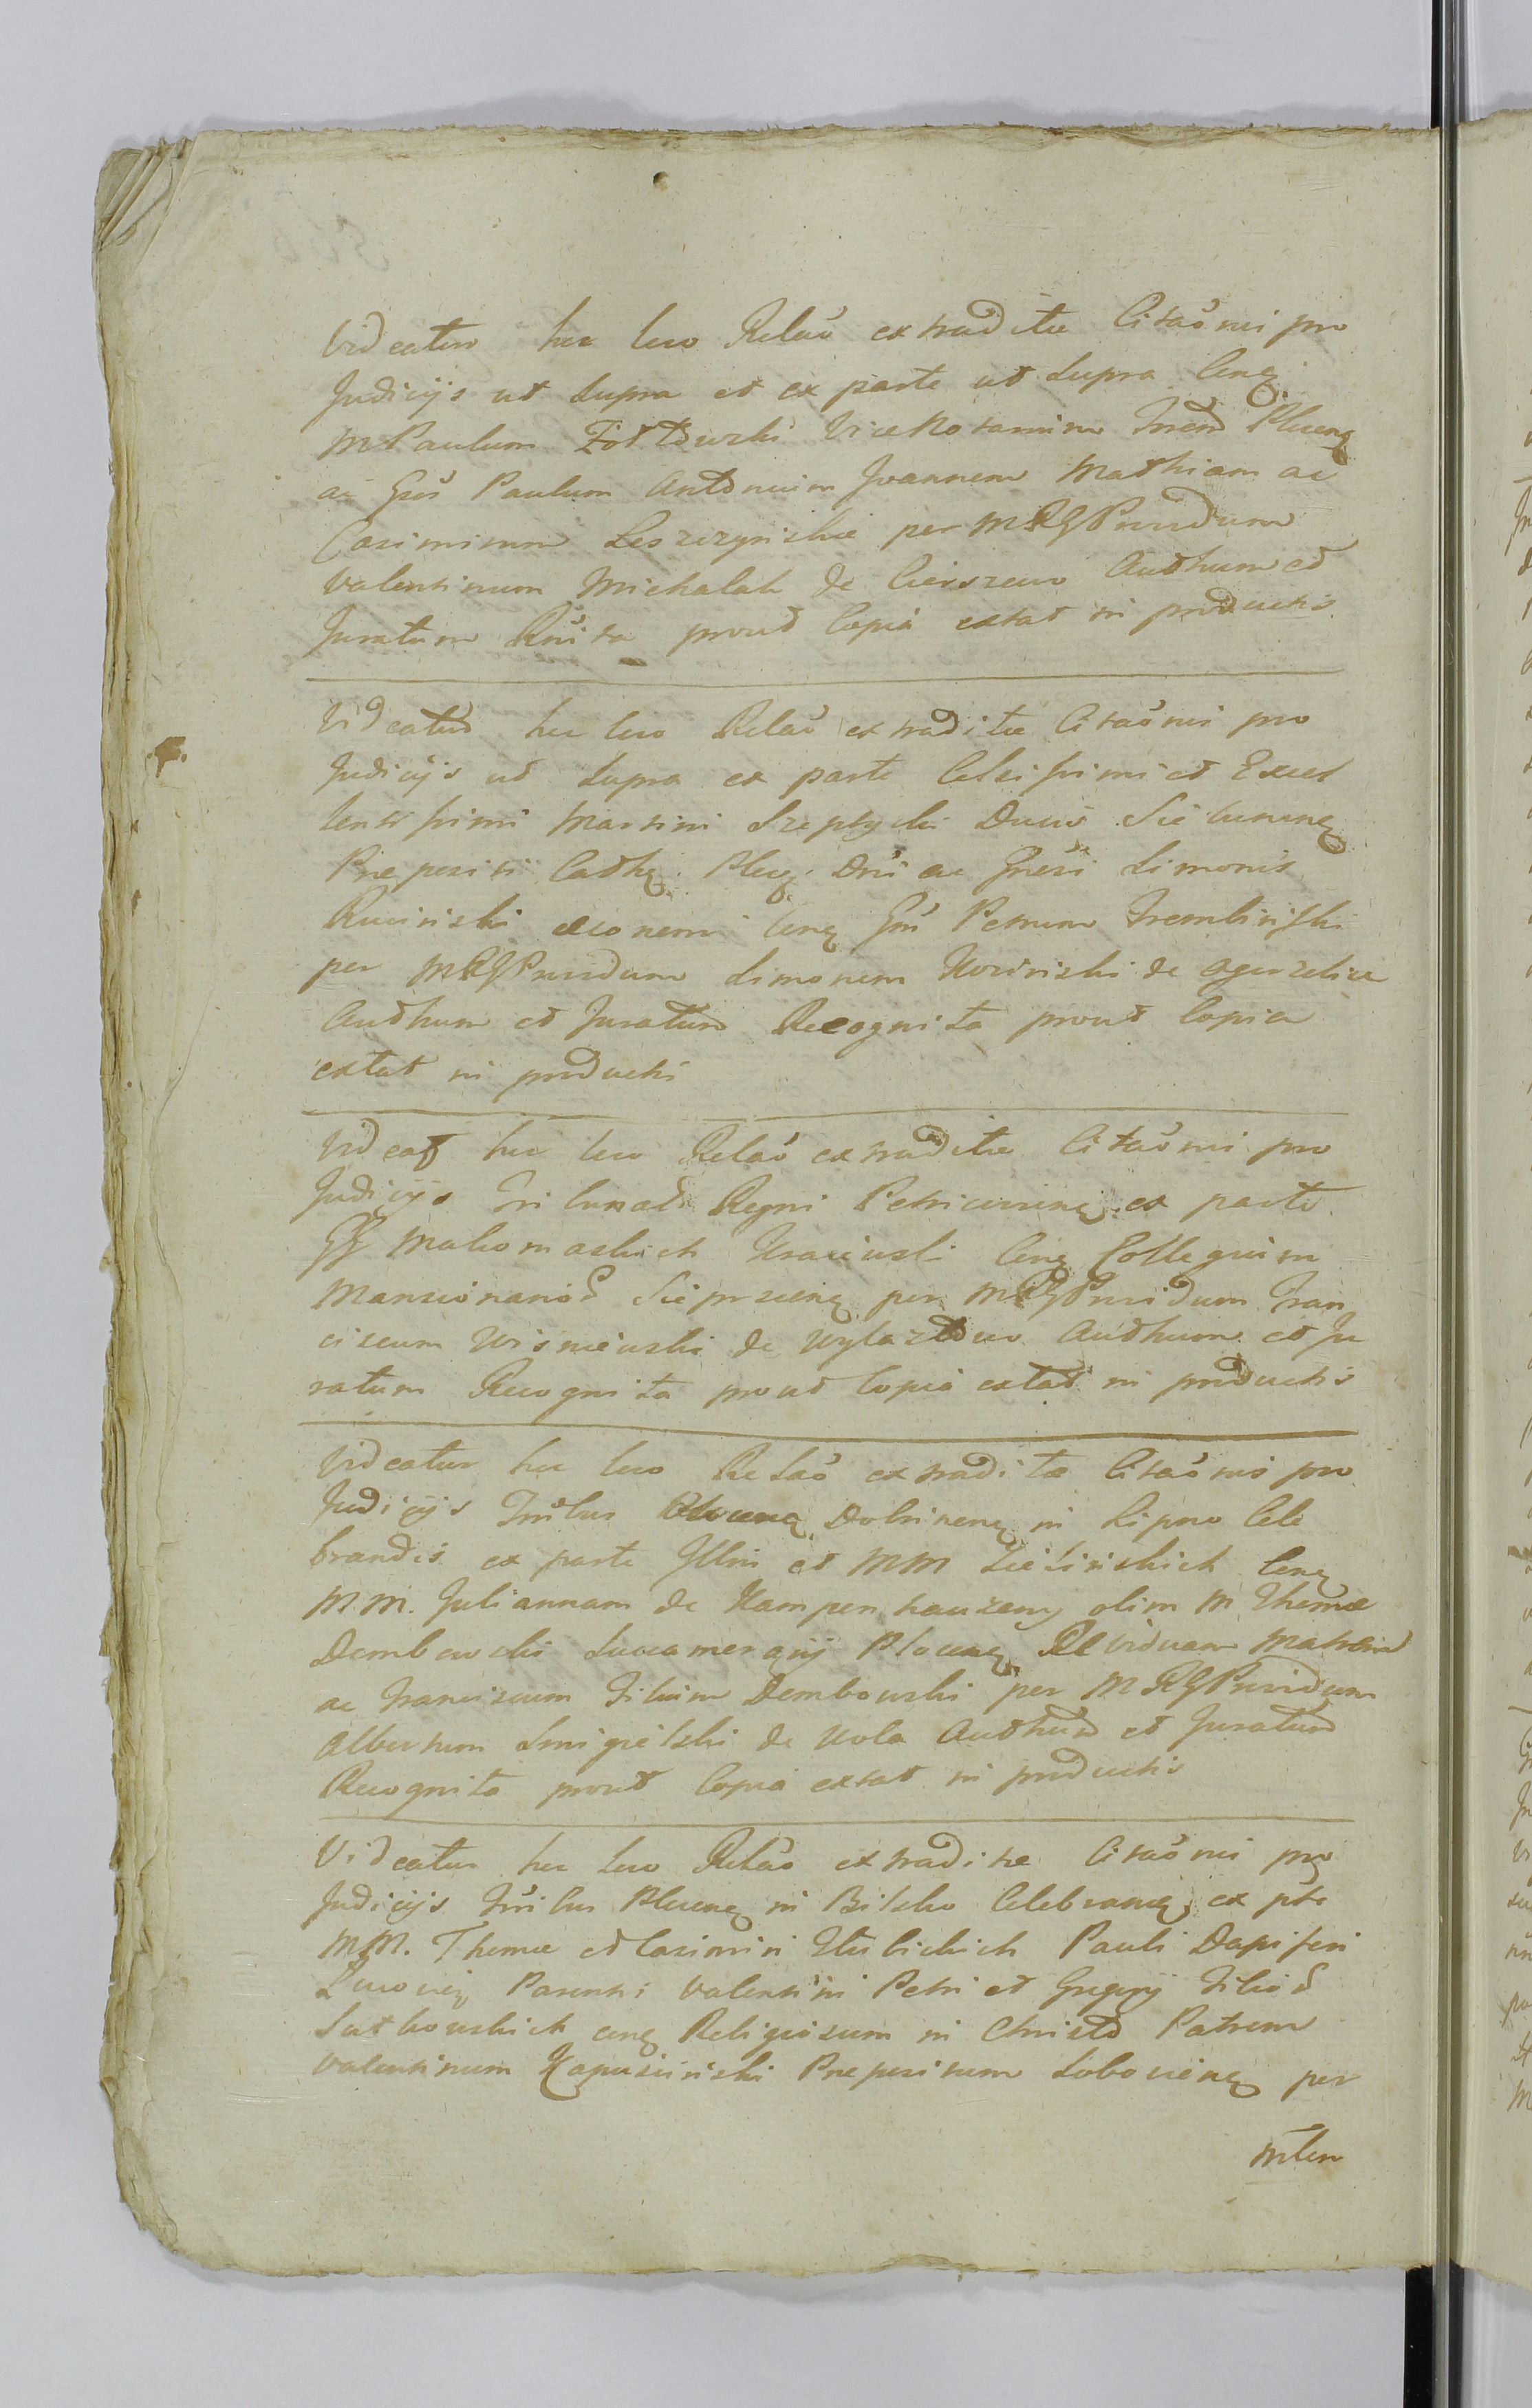 Videatur hic loco Relaõ extraditæ Citaõnis pro
Judicijs ut supra et ex parte ut supra Cenę
M Paulum Żółtowski ViceNotarium Plocenę
ac Paulum Antonium Joannem Mathiam ac
Casimirum Leszczynskie per MRGProvidum
Valentinum Michalak de Cierszewo Authum et
Juratum Rnita prout Copia extat in productis
Videatur hic loco Relaõ extraditæ Citaõnis pro
Judicijs ut supra ex parte Celsissimi et Excel
lentissimi Martini Szeptycki Ducis Sielunenę
Præpositi Cathę Plocę Dni ac Gnesi Simonis
Rucinski œconomi Cenę Gm Petrum Trembinski
per MRGProvidum Simonem Kosinski de Ogorzelice
Authum et Juratum Recognita prout Copia
extat in producti
Videat hic loco Relaõ extraditæ Citaõnis pro
Judicijs Tribunal Regni Petricovienę ex parte
GG Makomaskich Kraiewski Cenę Collegium
Mansionario Sieprcenę per MRGProvidum Fran
ciscum Wisniewski de Wylazłowo Authum et Ju
ratum Recognita prout Copia extat in productis
Videatur hic loco Relaõ extraditæ Citaõnis pro
Judicijs Trribus Plocenę Dobrinenę in Lipno Cele
brandis ex parte Illni et MM Zielinskich Cenę
M.M. Juliannam de Kampenhauzeny olim M Thomæ
Dembowski Succamerarij Plocenę Relviduam Matrem
ac Franciscum Filium Dembowski per MRGProvidum
Albertum Smigielski de Wola Authum et Juratum
Recognita prout Copia extat in productis
Videatur hic loco Relaõ extraditæ Citaõnis pro
Judicijs Trribus Plocenę in Bilsko Celebranę ex pte
MM. Thomæ et Casimiri Pauli Dapiferi
Parentis Valentini Petri et Gregorij Filio
Sutkowskich cenę Religiosum in Christo Patrem
Valentinum Kapuscinski Præpositum Łobovienę per
mlem